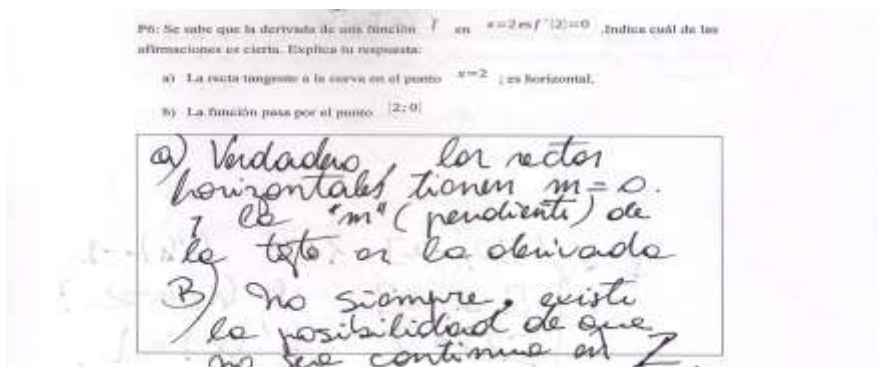 P6: Se sabe que la derivada de una función f en x=2 es f'(2)=0 .Indica cuál de las
afirmaciones es cierta. Explica tu respuesta:
a) La recta tangente a la curva en el punto x=2 ; es horizontal.
b) La función pasa por el punto (2;0)
a) Verdadero, las rectas
horizontales tienen m=0.
y la "m" (pendiente) de
la tgte. es la derivada
B) No siempre, existe
la posibilidad de que
no sea continua en 2.